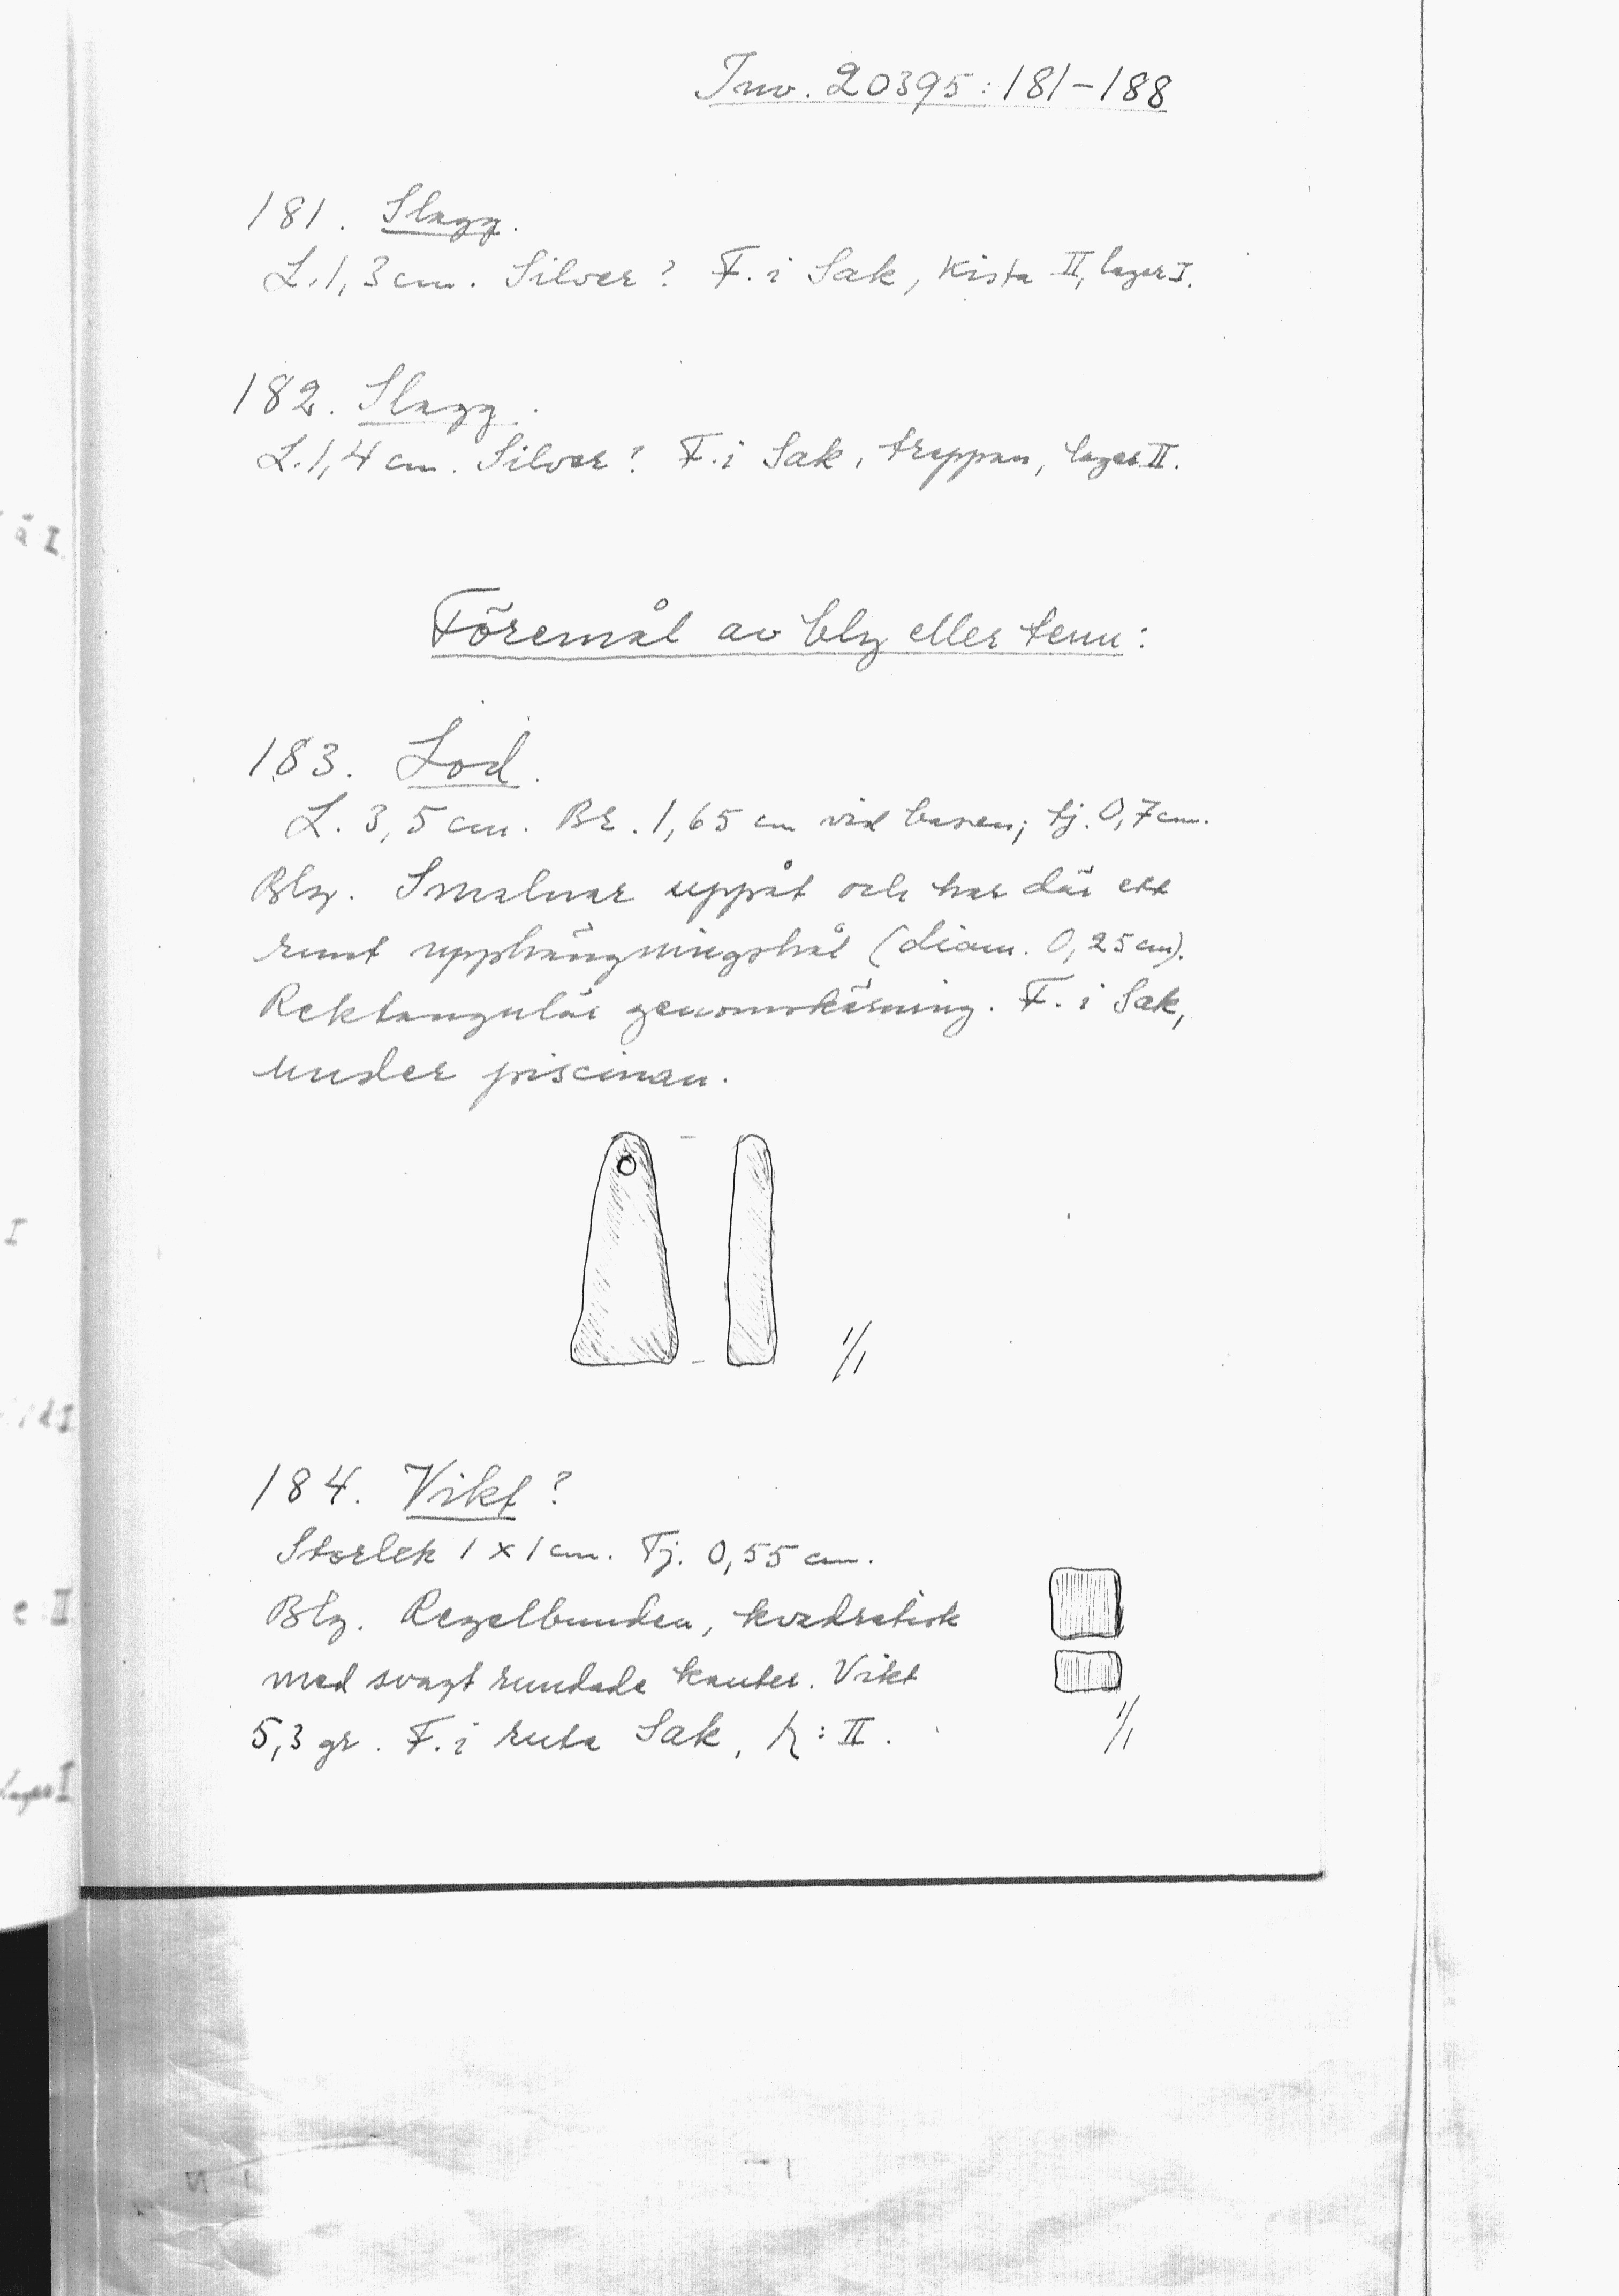 Inv. 20395:181-188
181. Slagg.
L. 1,3 cm. Silver? F. i Sak, Kista II, lager I.
182. Slagg.
L. 1,4 cm. Silver? F. i Sak, trappan, lager II.
Föremål av bly eller tenn:
183. Lod.
L. 3,5 cm. Br. 1,65 cm vid basen; tj. 0,7 cm.
Bly. Smalnar uppåt och har där ett
runt upphängningshål (diam. 0,25 cm).
Rektangulär genomskärning. F. i Sak,
under piscinan.
1/1
184. Vikt?
Storlek 1 x 1 cm. Tj. 0,55 cm.
Bly. Regelbunden, kvadratisk
med svagt rundade kanter. Vikt
5,3 gr. F. i ruta Sak, : II.
1/1
I.
I
I.
e II.
lager I